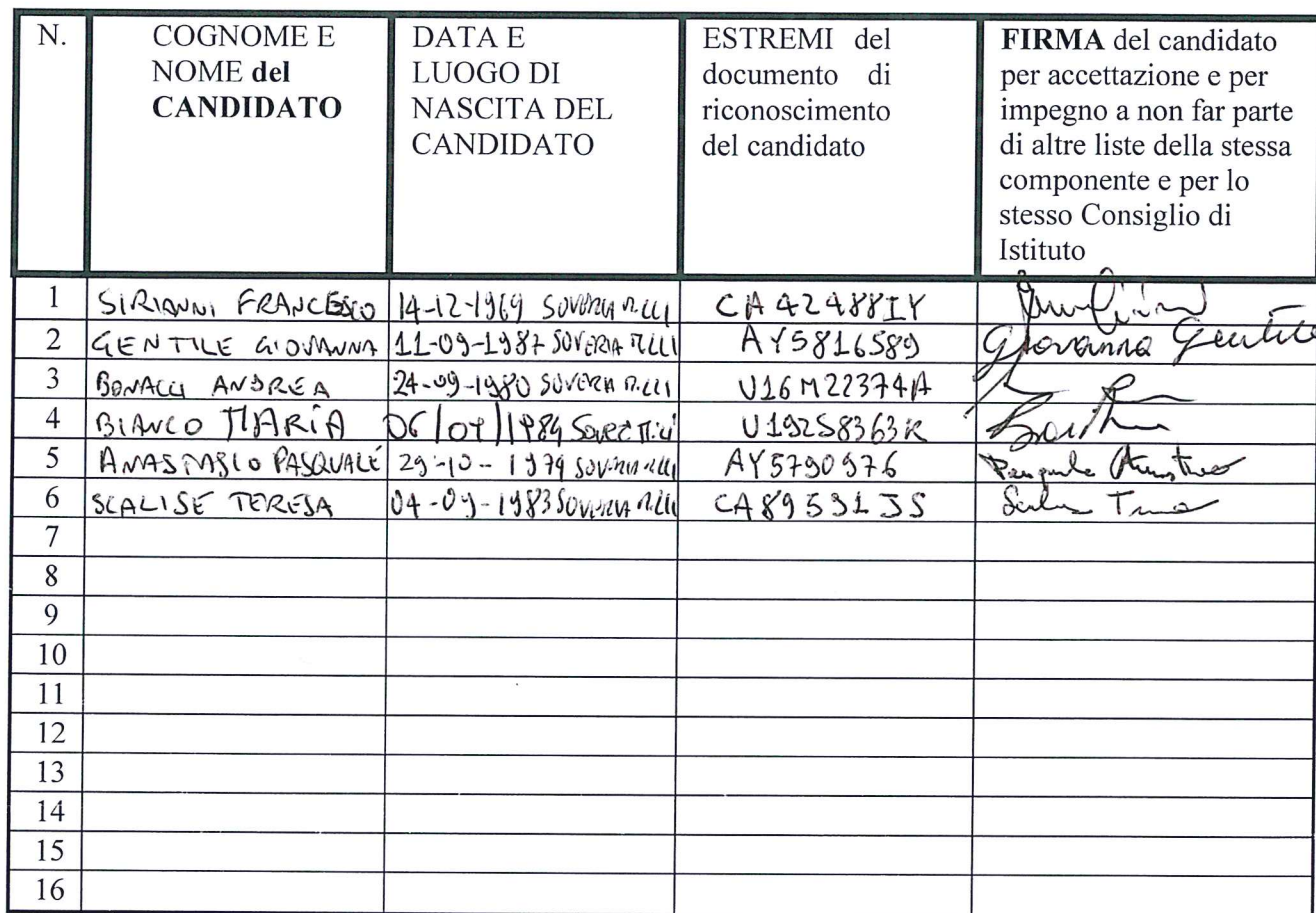 N.
COGNOME E
NOME del
CANDIDATO
DATA E
LUOGO DI
NASCITA DEL
CANDIDATO
ESTREMI del
documento di
riconoscimento
del candidato
FIRMA del candidato
per accettazione e per
impegno a non far parte
di altre liste della stessa
componente e per lo
stesso Consiglio di
Istituto
1 SIRIANNI FRANCESCO 14-12-1969 SOVERIA M.LLI CA42488IY
2 GENTILE GIOVANNA 11-09-1987 SOVERIA M.LLI AY5816589 Giovanna Gentile
3 BONACCI ANDREA 24-09-1980 SOVERIA M.LLI U16M22374A
4 BIANCO MARIA U19258363R
5 ANASTASIO PASQUALE 29-10-1979 SOVERIA M.LLI AY5790976
6 SCALISE TERESA 04-09-1983 SOVERIA M.LLI CA89531JS
7
8
9
10
11
12
13
14
15
16